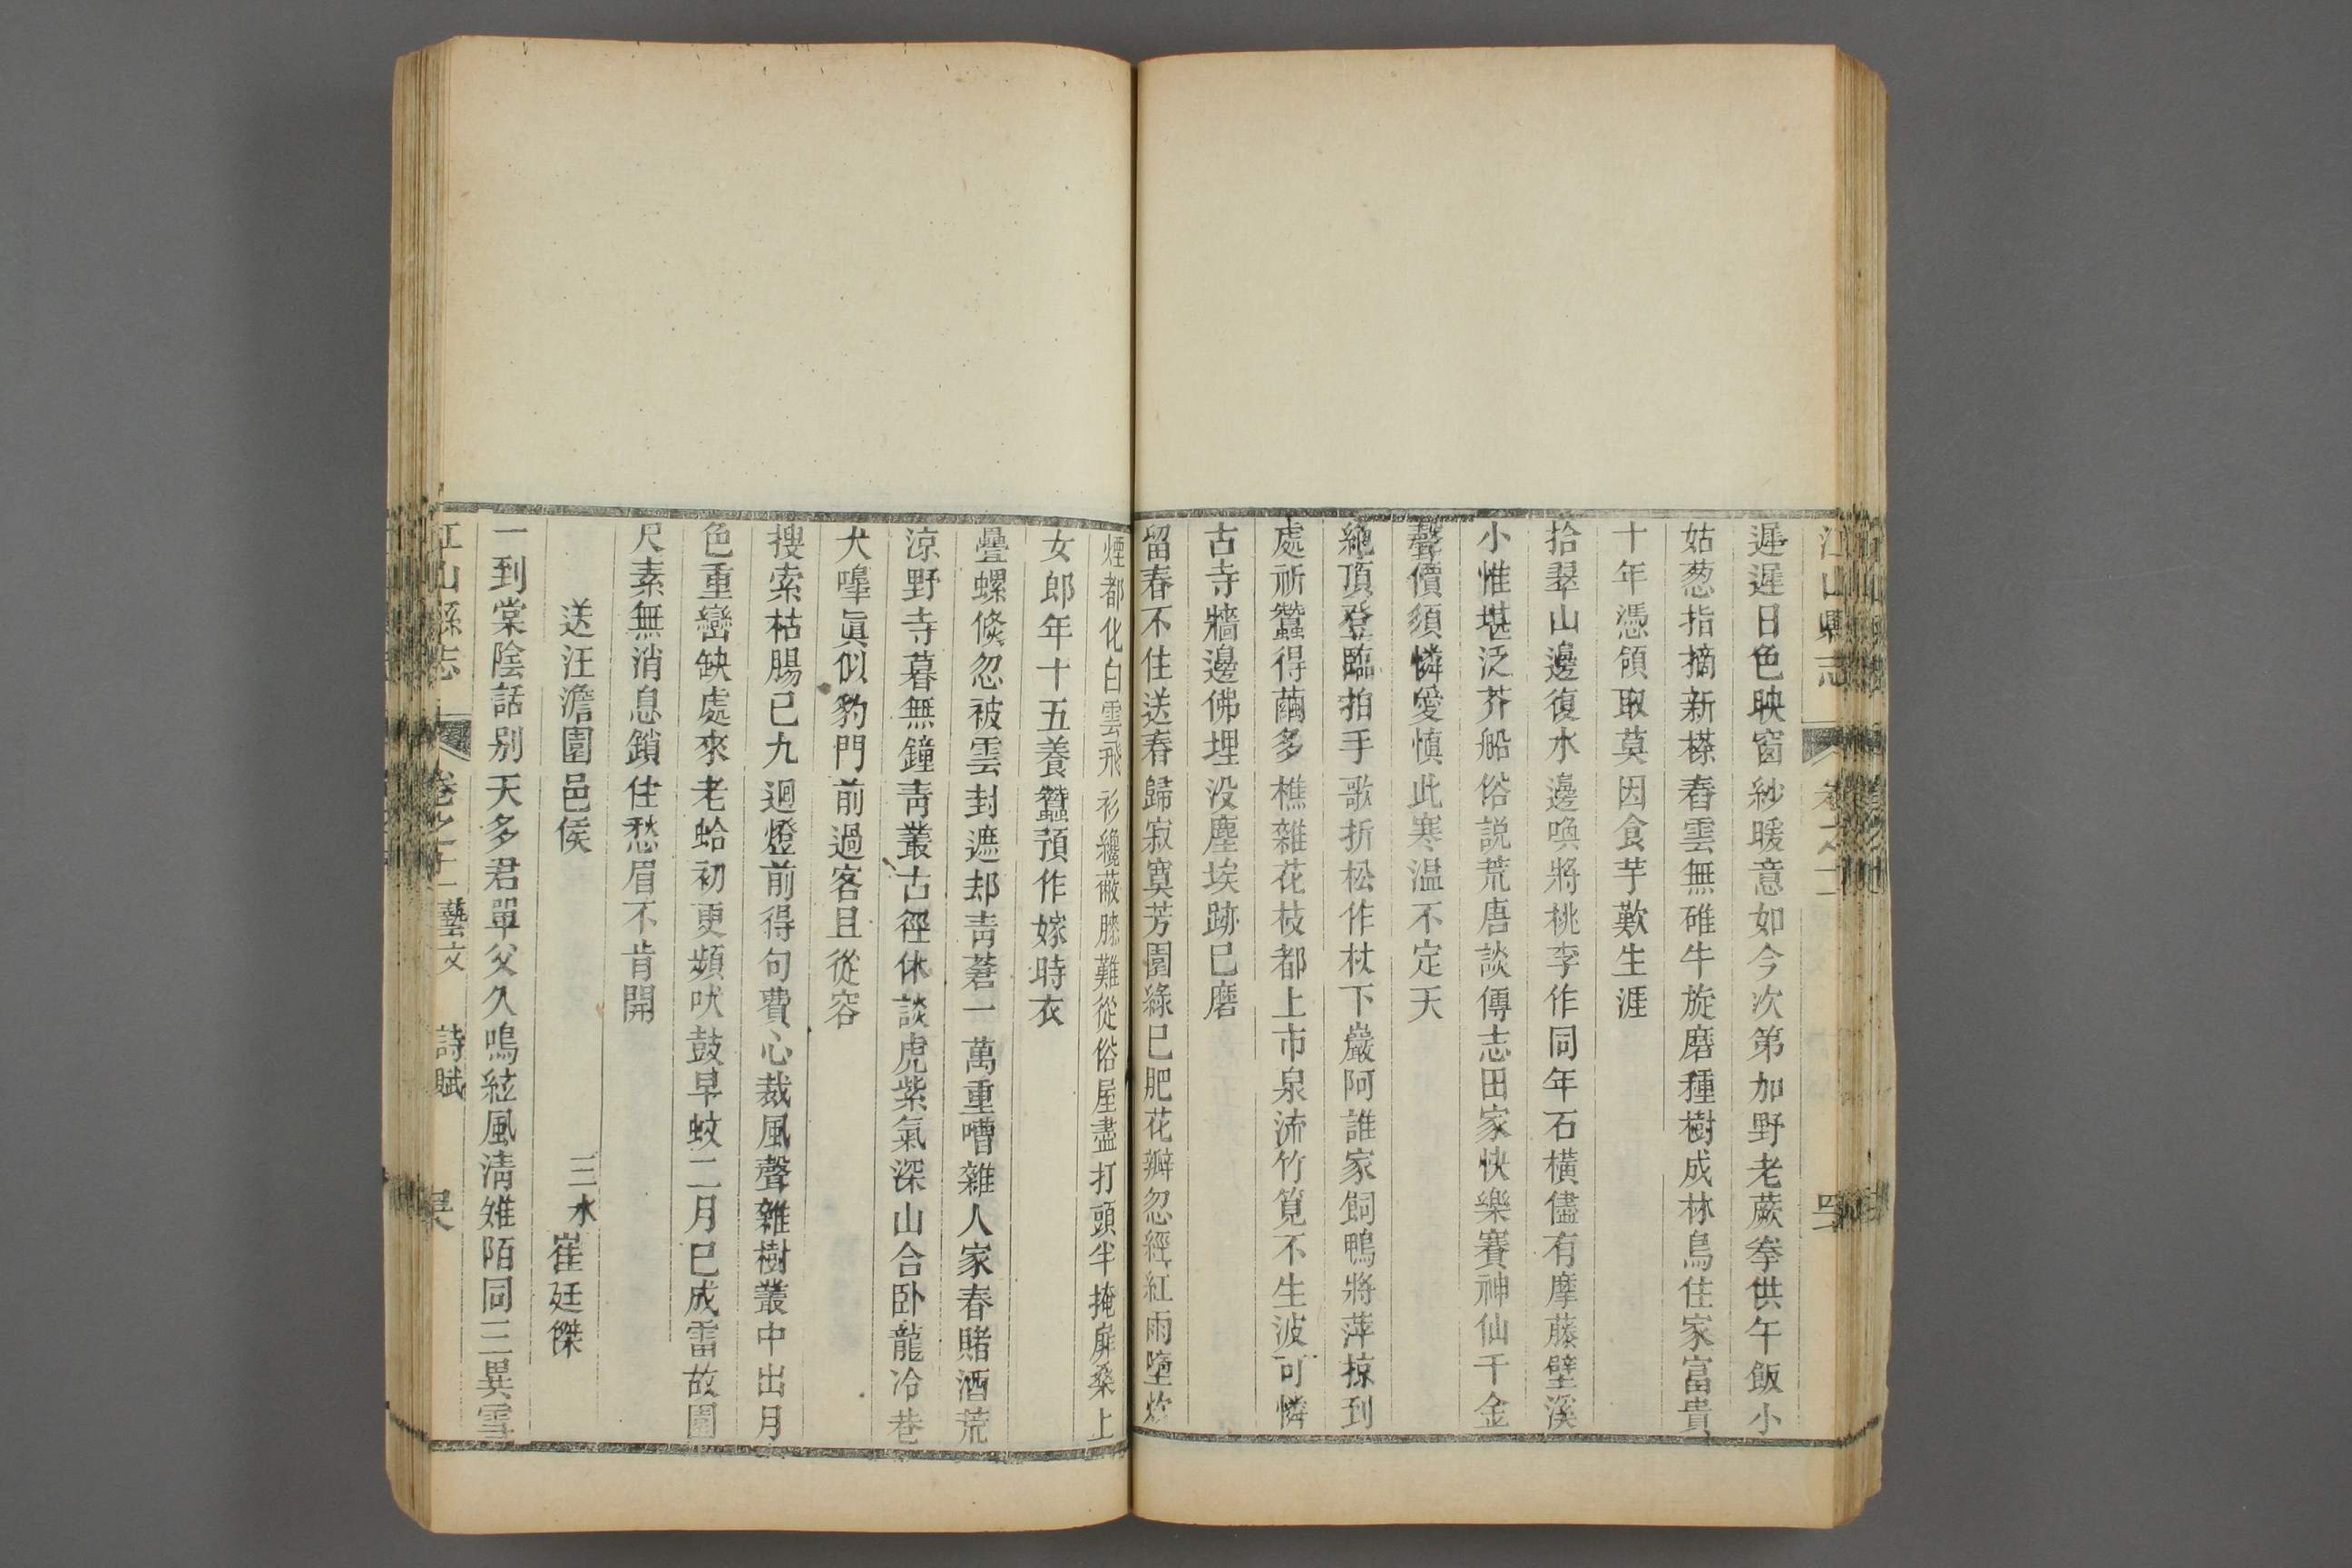 江山縣志 卷之十一
遲遲日色映窗紗暖意如今次第加野老蕨拳供午飯小
姑葱指摘新㮈舂雲無碓牛旋磨種樹成林鳥住家富貴
十年憑領取莫因食芋歎生涯
拾翠山邊復水邊喚將桃李作同年石橫儘有摩藤壁溪
小惟堪泛芥船俗説荒唐談傳志田家快樂賽神仙千金
聲價須憐愛慎此寒温不定天
絶頂登臨拍手歌折松作杖下巖阿誰家飼鴨將萍掠到
處祈蠶得繭多樵雜花枝都上市泉流竹筧不生波可憐
古寺牆邊佛埋没塵埃跡巳磨
留春不住送春歸寂寞芳園綠巳肥花瓣忽經紅雨墮炊
煙都化白雲飛衫纔蔽膝難從俗屋盡打頭半掩扉桑上
女郎年十五養蠶預作嫁時衣
疊螺倐忽被雲封遮却靑蒼一萬重嘈雜人家春賭酒荒
涼野寺暮無鐘靑叢古徑休談虎紫氣深山合卧龍冷巷
犬嘷眞似豹門前過客且從容
搜索枯腸已九迴燈前得句費心裁風聲雜樹叢中出月
色重巒缺處來老蛤初更頻吠鼓早蚊二月巳成雷故園
尺素無消息鎖住愁眉不肯開
送汪澹園邑侯 三水崔廷傑
一到棠陰話别天多君單父久鳴絃風淸雉陌同三異雪
江山縣志 卷之十一藝文 詩賦